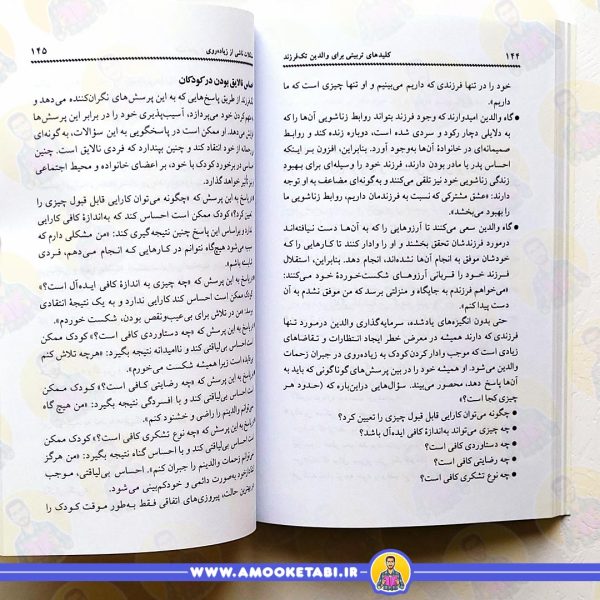 ۱۴۴ کلیدهای تربیتی برای والدین تک‌فرزند
خود را در تنها فرزندی که داریم می‌بینیم و او تنها چیزی است که ما
داریم».
● گاه والدین امیدوارند که وجود فرزند بتواند روابط زناشویی آن‌ها را که
به دلایلی دچار رکود و سردی شده است، دوباره زنده کند و روابط
صمیمانه‌ای در خانوادهٔ آن‌ها به‌وجود آورد. بنابراین، افزون بر اینکه
احساس پدر یا مادر بودن دارند، فرزند خود را وسیله‌ای برای بهبود
زندگی زناشویی خود نیز تلقی می‌کنند و به‌گونه‌ای مضاعف به او توجه
دارند: «عشق مشترکی که نسبت به فرزندمان داریم، روابط زناشویی ما
را بهبود می‌بخشد».
● گاه والدین سعی می‌کنند تا آرزوهایی را که به آن‌ها دست نیافته‌اند
درمورد فرزندشان تحقق بخشند و او را وادار کنند تا کارهایی را که
خودشان موفق به انجام آن‌ها نشده‌اند، انجام دهد. بنابراین، استقلال
فرزند خود را قربانی آرزوهای شکست‌خوردهٔ خود می‌کنند:
«می‌خواهم فرزندم به جایگاه و منزلتی برسد که من موفق نشدم به آن
دست پیدا کنم».
حتی بدون انگیزه‌های یادشده، سرمایه‌گذاری والدین درمورد تنها
فرزندی که دارند همیشه در معرض خطر ایجاد انتظارات و تقاضاهای
زیادی است که موجب وادار کردن کودک به زیاده‌روی در جبران زحمات
والدین می‌شود. او همیشه خود را در بین پرسش‌های گوناگونی که باید به
آن‌ها پاسخ دهد، محصور می‌بیند. سؤال‌هایی دراین‌باره که (حدود هر
چیزی کجا است؟)
● چگونه می‌توان کارایی قابل قبول چیزی را تعیین کرد؟
● چه چیزی می‌تواند به‌اندازهٔ کافی ایده‌آل باشد؟
● چه دستاوردی کافی است؟
● چه رضایتی کافی است؟
● چه نوع تشکری کافی است؟
ناشی از زیاده‌روی ۱۴۵
نالایق بودن در کودکان
از طریق پاسخ‌هایی که به این پرسش‌های نگران‌کننده می‌دهد و
کردن خود می‌پردازد، آسیب‌پذیری خود را در برابر این پرسش‌ها
می‌دهد. او ممکن است در پاسخگویی به این سؤالات، به‌گونه‌ای
از خود انتقاد کند و چنین بپندارد که فردی نالایق است. چنین
در برخورد کودک با خود، بر اعضای خانواده و محیط اجتماعی
تأثیر خواهد گذارد.
پاسخ به این پرسش که «چگونه می‌توان کارایی قابل قبول چیزی را
کرد؟» کودک ممکن است احساس کند که به‌اندازهٔ کافی کارایی
ندارد و براساس این پاسخ چنین نتیجه‌گیری کند: «من مشکلی دارم که
می‌شود هیچ‌گاه نتوانم در کارهایی که انجام می‌دهم، فردی
باشم».
پاسخ به این پرسش که «چه چیزی به اندازهٔ کافی ایده‌آل است؟»
کودک ممکن است احساس کند کارایی ندارد و به یک نتیجهٔ انتقادی
برسد: «من در تلاش برای بی‌عیب‌ونقص بودن، شکست خوردم».
پاسخ به این پرسش که «چه دستاوردی کافی است؟» کودک ممکن
است احساس بی‌لیاقتی کند و ناامیدانه نتیجه بگیرد: «هرچه تلاش کنم
است زیرا همیشه شکست می‌خورم».
پاسخ به این پرسش که «چه رضایتی کافی است؟» کودک ممکن
است احساس بی‌لیاقتی کند و با افسردگی نتیجه بگیرد: «من هیچ گاه
نمی‌توانم والدینم را راضی و خشنود کنم».
پاسخ به این پرسش که «چه نوع تشکری کافی است؟» کودک ممکن
است احساس بی‌لیاقتی کند و با احساس گناه نتیجه بگیرد: «من هرگز
نمی‌توانم زحمات والدینم را جبران کنم». احساس بی‌لیاقتی، موجب
به‌صورت دائمی و خودکم‌بینی می‌شود.
در بهترین حالت، پیروزی‌های اتفاقی فقط به‌طور موقت کودک را
WWW.AMOOKETABI.IR